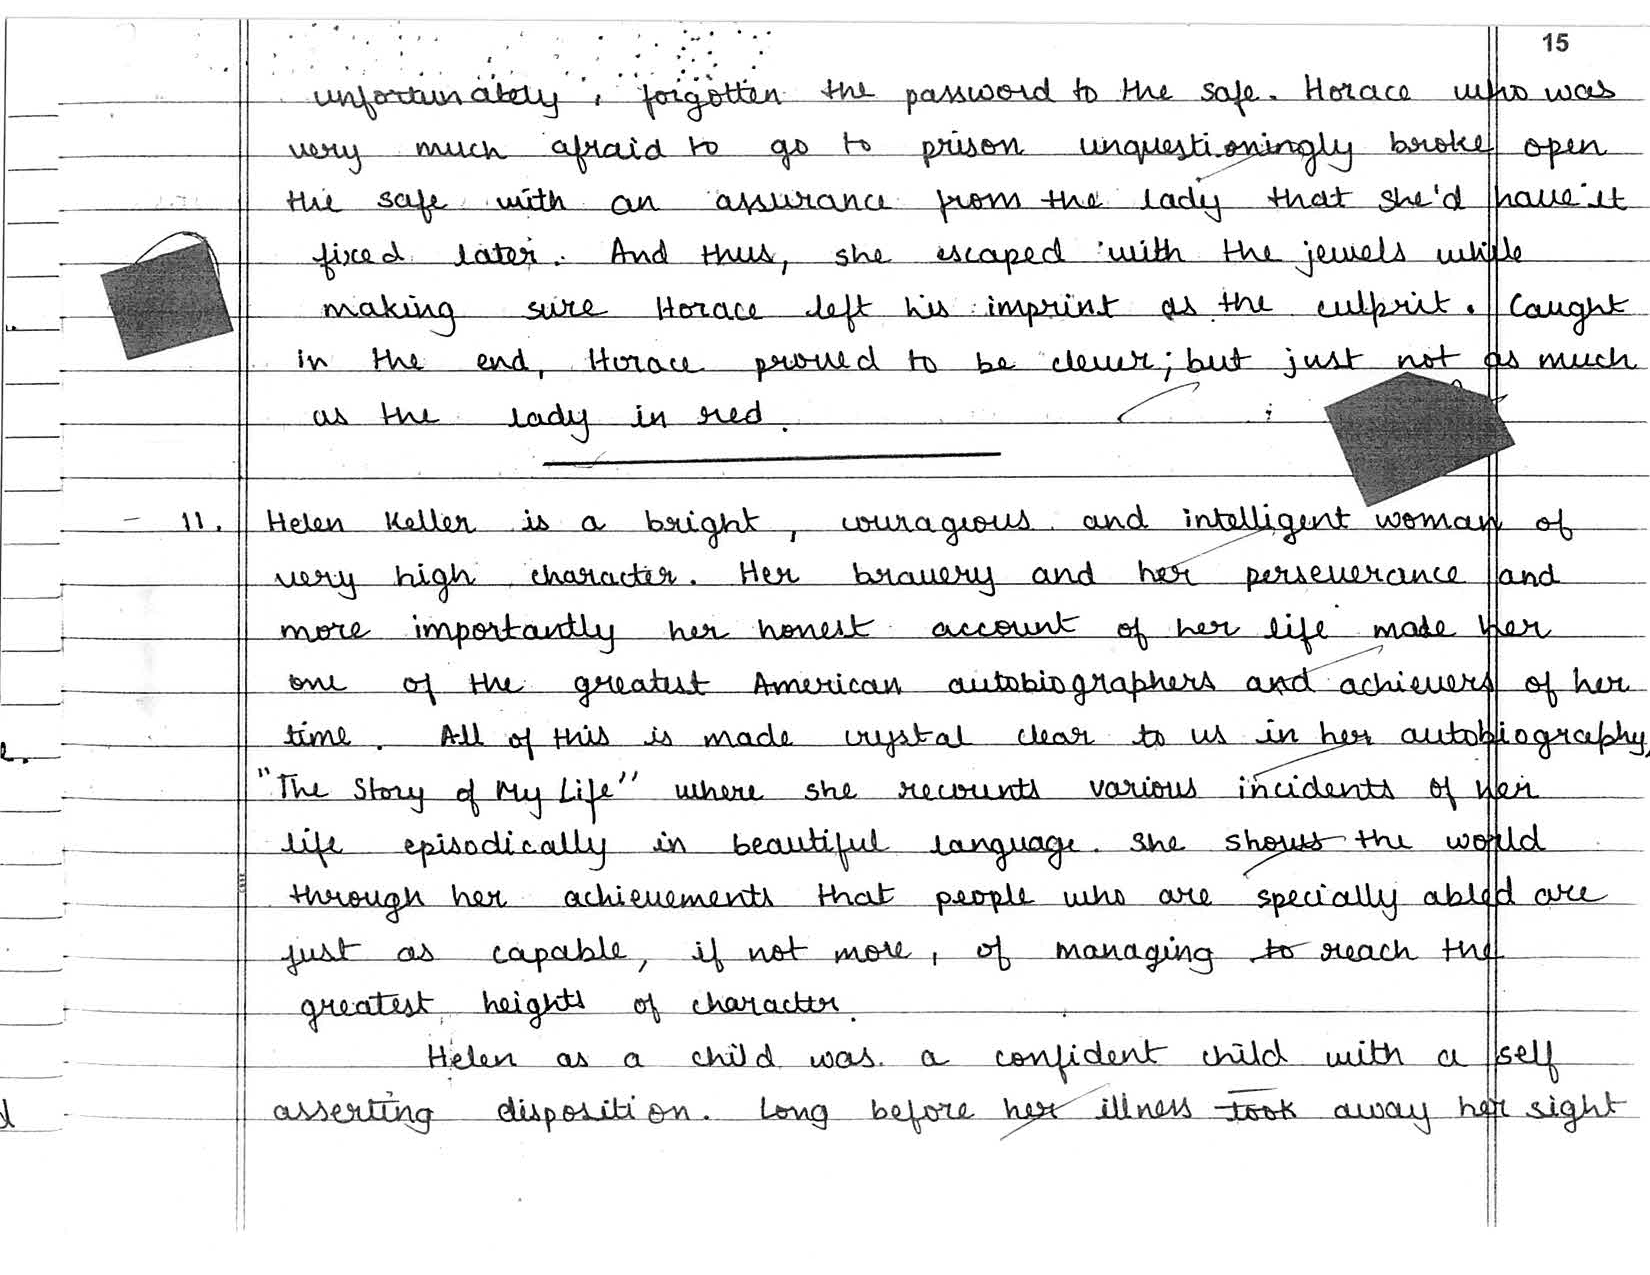 15
unfortunately, forgotten the password to the safe. Horace who was
very much afraid to go to prison unquestioningly broke open
the safe with an assurance from the lady that she'd have it
fixed later. And thus, she escaped with the jewels while
making sure Horace left his imprint as the culprit. Caught
in the end, Horace proved to be clever; but just not as much
as the lady in red.
11. Helen Keller is a bright, courageous and intelligent woman of
very high character. Her bravery and her perseverance and
more importantly her honest account of her life made her
one of the greatest American autobiographers and achievers of her
time. All of this is made crystal clear to us in her autobiography,
"The Story of My Life" where she recounts various incidents of her
life episodically in beautiful language. She shows the world
through her achievements that people who are specially abled are
just as capable, if not more, of managing to reach the
greatest heights of character.
Helen as a child was a confident child with a self
asserting disposition. Long before her illness took away her sight